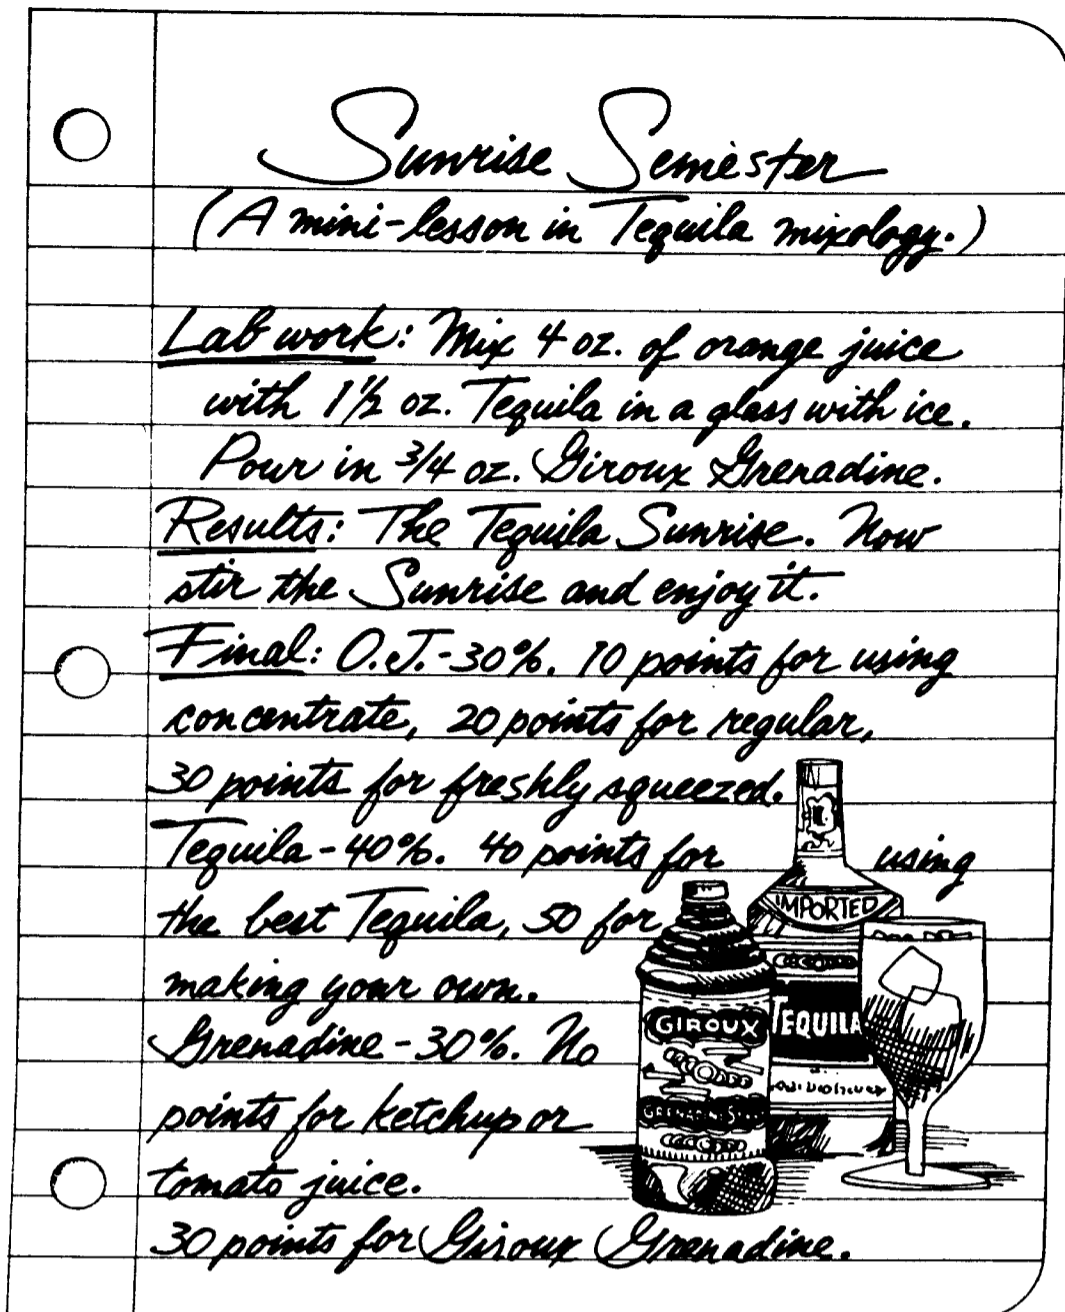 Sunrise Semester
(A mini-lesson in Tequila mixology.)
Lab work: Mix 4 oz. of orange juice
with 1 1/2 oz. Tequila in a glass with ice.
Pour in 3/4 oz. Giroux Grenadine.
Results: The Tequila Sunrise. Now
stir the Sunrise and enjoy it.
Final: O.J.-30%. 10 points for using
concentrate, 20 points for regular,
30 points for freshly squeezed.
Tequila-40%. 40 points for using
the best Tequila, 50 for
making your own.
Grenadine-30%. No
points for ketchup or
tomato juice.
30 points for Giroux Grenadine.
IMPORTED
TEQUILA
GIROUX